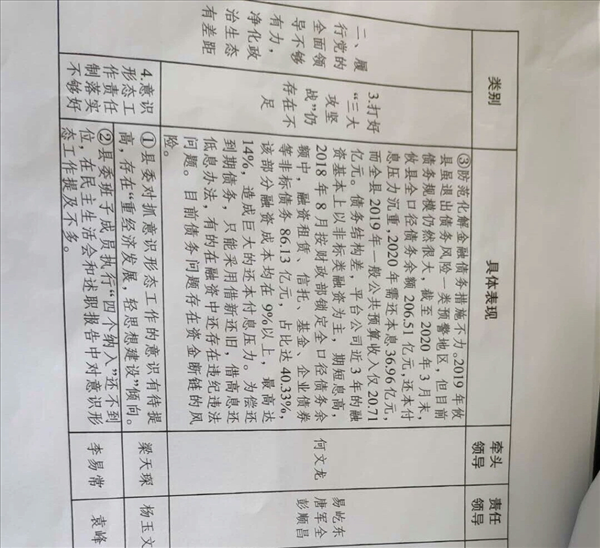 类别
具体表现
牵头
领导
责任
领导
二、履
行党的
全面领
导不够
有力，
净化政
治生态
有差距
3.打好
“三大
攻坚
战”仍
存在不
足
③防范化解金融债务措施不力。2019年攸
县虽退出债务风险一类预警地区，但目前
债务规模仍然很大，截至2020年3月末，
攸县全口径债务余额206.51亿元，还本付
息压力沉重，2020年需还本息36.96亿元，
而全县2019年一般公共预算收入仅20.71
亿元。债务结构差。平台公司近3年的融
资基本上以非标类融资为主，期短息高，
2018年8月按财政部锁定全口径债务余
额中，融资租赁、信托、基金、企业债券
等非标债务86.13亿元，占比达40.33%，
该部分融资成本均在9%以上，最高达
14%，造成巨大的还本付息压力。为偿还
到期债务，只能采用借新还旧，借高息还
低息办法，有的在融资中还存在违纪违法
问题。目前债务问题存在资金断链的风
险。
何文龙
易屹东
唐军全
彭顺昌
4.意识
形态工
作责任
制落实
不够好
①县委对抓意识形态工作的意识有待提
高，存在“重经济发展，轻思想建设”倾向。
②县委班子成员执行“四个纳入”还不到
位，在民主生活会和述职报告中对意识形
态工作提及不多。
梁天琛
李易常
杨玉文
袁峰